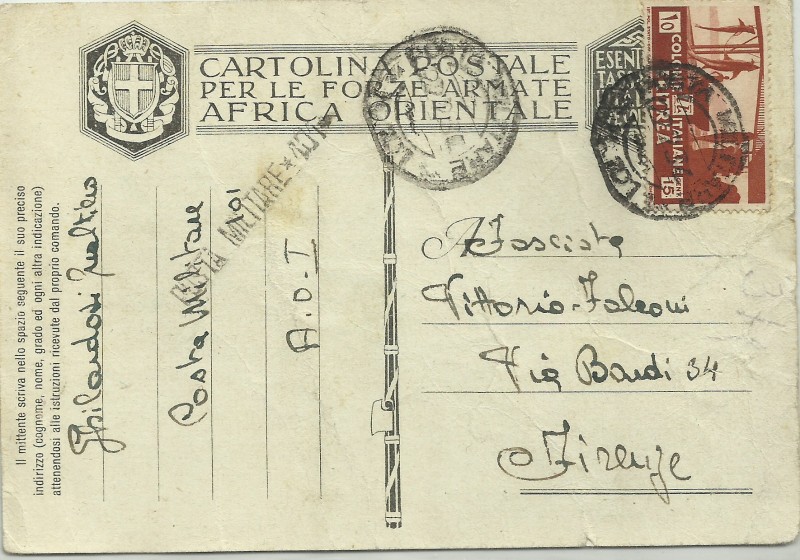 CARTOLINA POSTALE
PER LE FORZE ARMATE
AFRICA ORIENTALE
ESENTE
TAS
10
15
POSTA MILITARE
POSTA MILITARE
Il mittente scriva nello spazio seguente il suo preciso
indirizzo (cognome, nome, grado ed ogni altra indicazione)
attenendosi alle istruzioni ricevute dal proprio comando.
Posta Militare 101
A.O.I
A Fascista
Vittorio Falconi
Via Bandi 34
Firenze